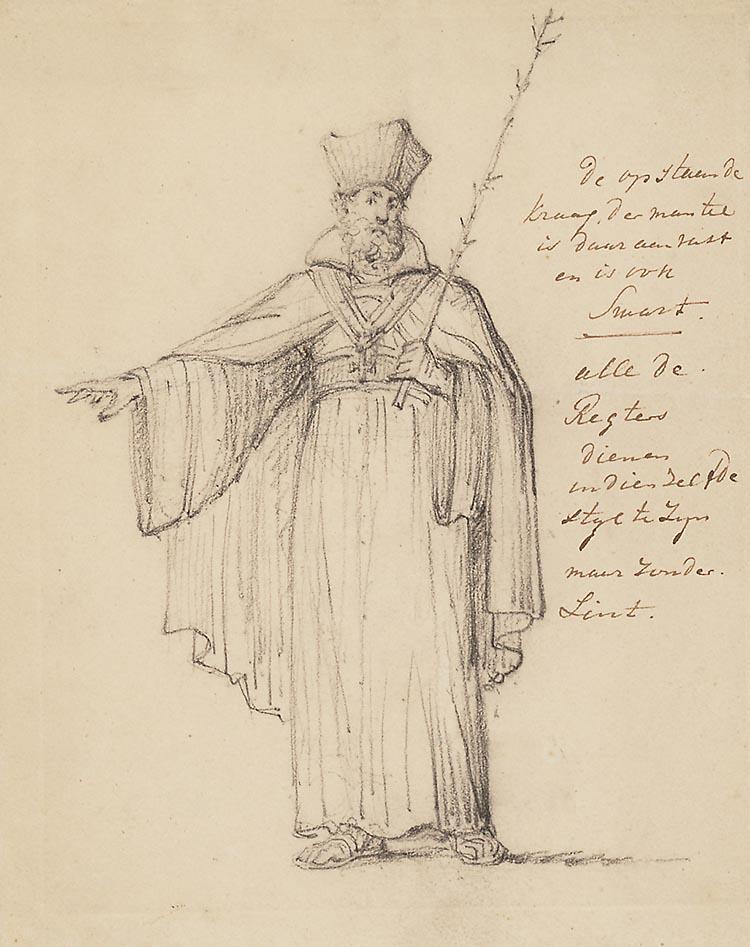 de opstaande
kraag, der mantel
is daar aan vast
en is ook
Swart.
alle de
Regters
dienen
in dien zelfde
styl te zyn
maar zonder
Lint.